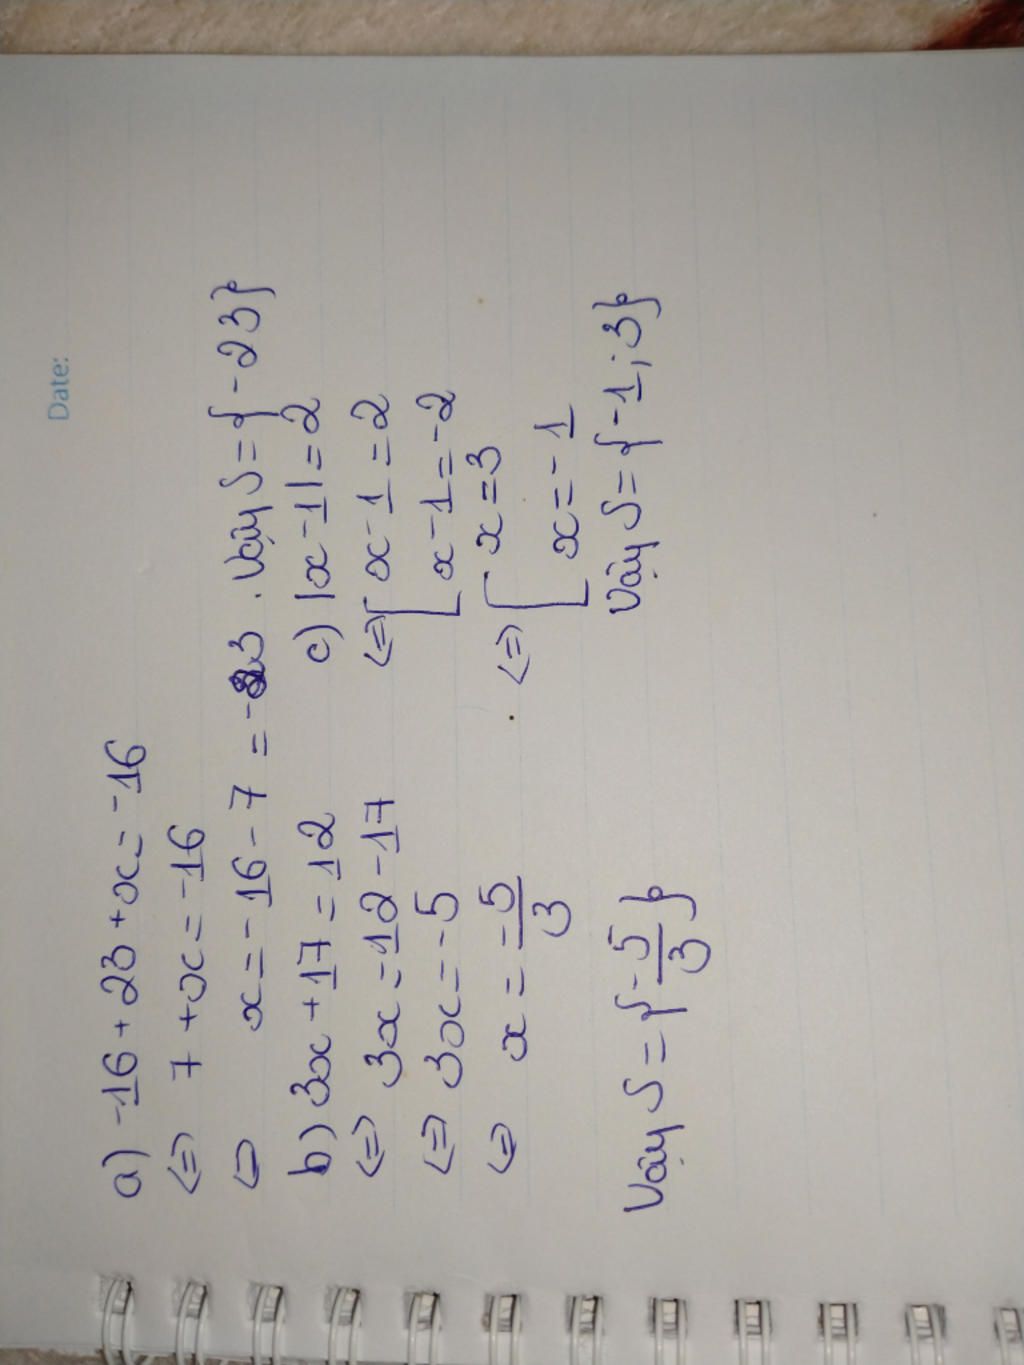 Date:
a) -16 + 23 + x = -16
<=> 7 + x = -16
<=> x = -16 - 7 = -23. Vậy S = {-23}
b) 3x + 17 = 12
<=> 3x = 12 - 17
<=> 3x = -5
<=> x = -5/3
Vậy S = {-5/3}
c) |x - 1| = 2
<=> [ x - 1 = 2
x - 1 = -2
<=> [ x = 3
x = -1
Vậy S = {-1; 3}